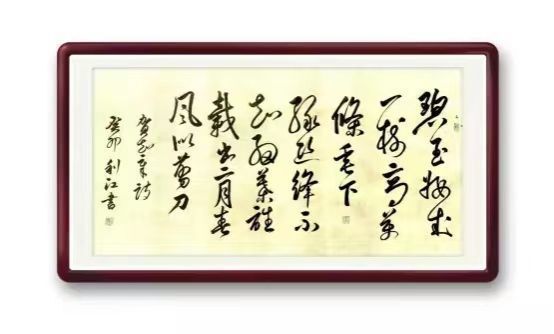 碧玉妝成
一樹高萬
條垂下
綠絲絛不
知細葉誰
裁出二月春
風似剪刀
賀知章詩
癸卯利江書